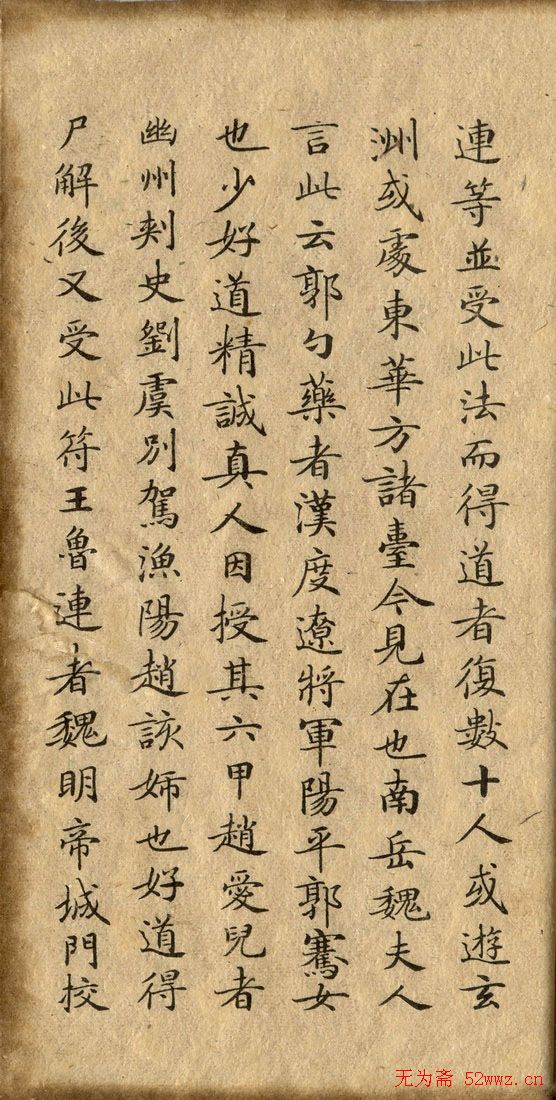 連等並受此法而得道者復數十人或遊玄
洲或處東華方諸臺今見在也南岳魏夫人
言此云郭勺藥者漢度遼將軍陽平郭騫女
也少好道精誠真人因授其六甲趙愛兒者
幽州刾史劉虞別駕漁陽趙該姊也好道得
尸解後又受此符王魯連者魏明帝城門挍
无为斋 52wwz.cn